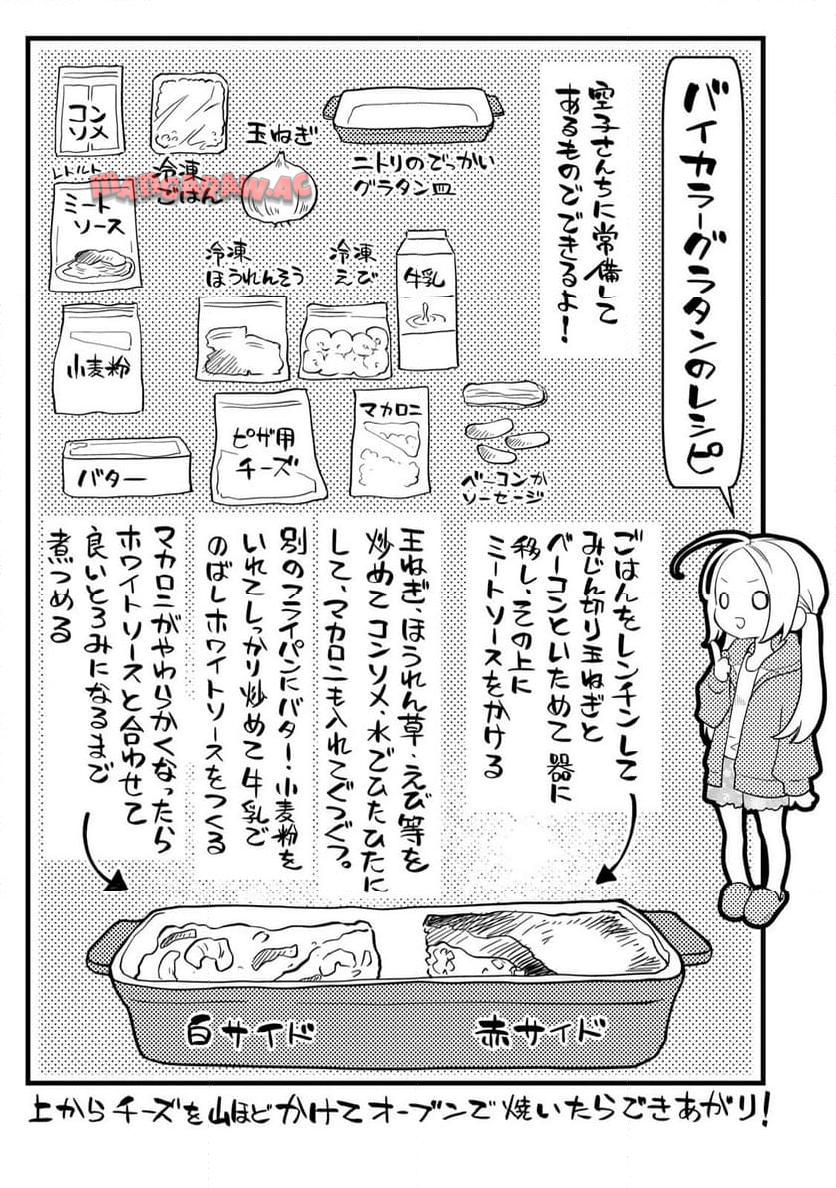 バイカラーグラタンのレシピ
空子さんちに常備して
あるものでできるよ！
ニトリのでっかい
グラタン皿
玉ねぎ
冷凍
ごはん
コン
ソメ
レトルト
ミート
ソース
MANGARAW.AC
牛乳
冷凍
えび
冷凍
ほうれんそう
小麦粉
ベーコンか
ソーセージ
マカロニ
ピザ用
チーズ
バター
ごはんをレンチンして
みじん切り玉ねぎと
ベーコンといためて器に
移し、その上に
ミートソースをかける
玉ねぎ、ほうれん草・えび等を
炒めてコンソメ、水でひたひたに
して、マカロニも入れてぐつぐつ。
別のフライパンにバター・小麦粉を
いれてしっかり炒めて牛乳で
のばしホワイトソースをつくる
マカロニがやわらかくなったら
ホワイトソースと合わせて
良いとろみになるまで
煮つめる
白サイド
赤サイド
上からチーズを山ほどかけてオーブンで焼いたらできあがり！